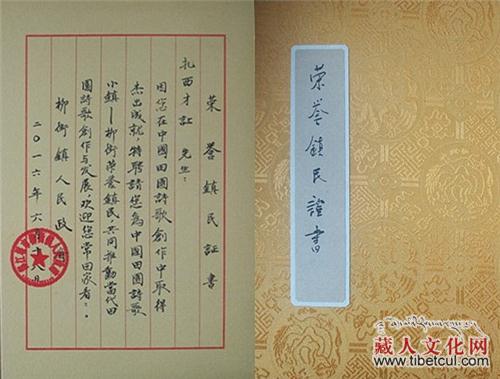 榮譽鎮民証書
扎西才让 先生:
因您在中國田園詩歌創作中取得
杰出成就,特聘請您為中國田園詩歌
小鎮—柳街榮譽鎮民,共同推動當代田
園詩歌創作与发展,欢迎您常回家看:.
柳街鎮人民政
二〇一六年六月十八日
榮誉鎮民證書
藏人文化网
http://www.tibetcul.com